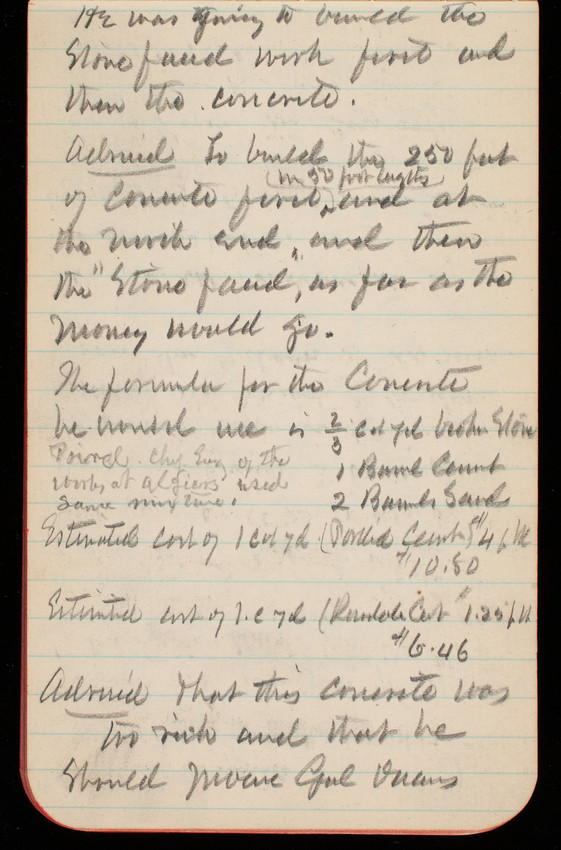 He was going to build the
Stone faced work first and
then the concrete.
Advised to build the 250 feet
(in 50 foot lengths)
of Concrete first, and at
the north end, and then
the "Stone faced", as far as the
money would go.
The formula for the Concrete
he would use is 2/3 c yd broken Stone
1 Barrel Cement
2 Barrels Sand
Chf Eng of the
works at Algiers used
same mixture.
Estimated cost of 1 c yd (Portld Cement $4 p bbl
$10.80
Estimated cost of 1 c yd (Rosendale Cet $1.25 p bbl
$6.46
Advised that this concrete was
too rich and that he
Should